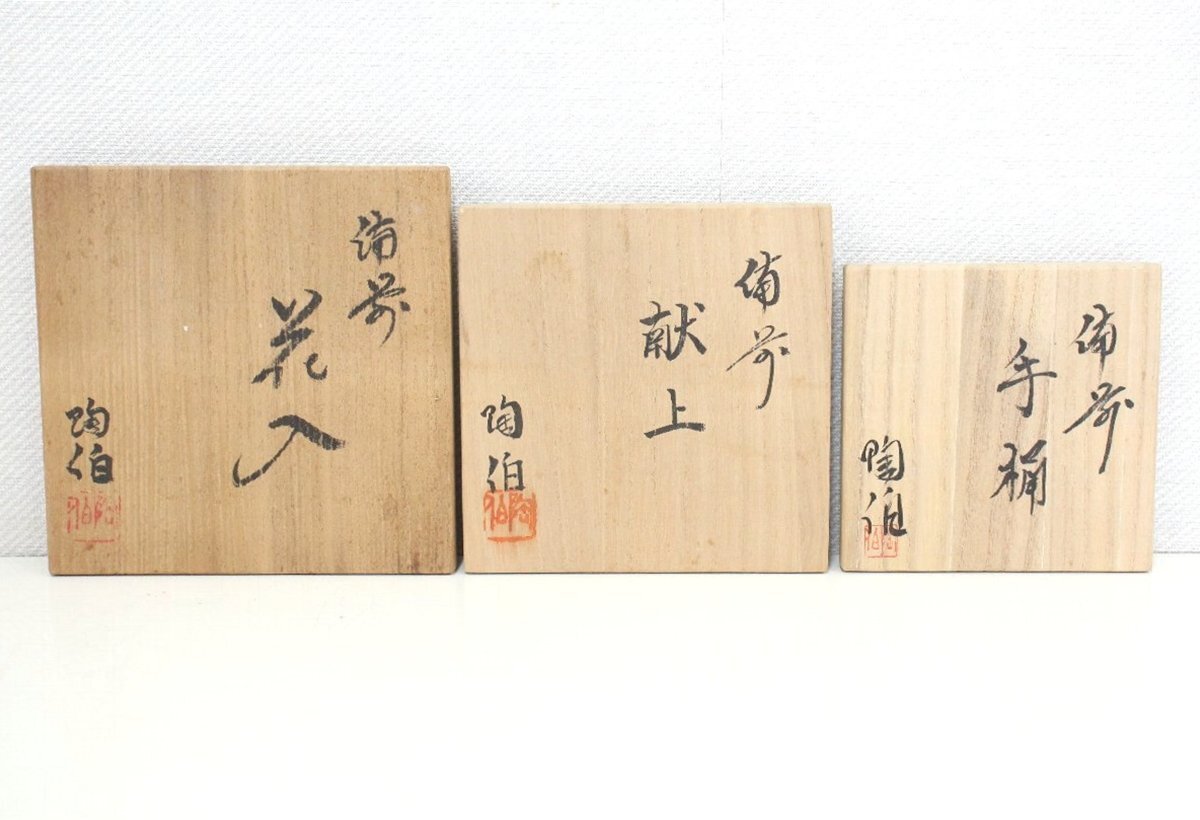 備前
花入
陶伯
備前
献上
陶伯
備前
手桶
陶伯